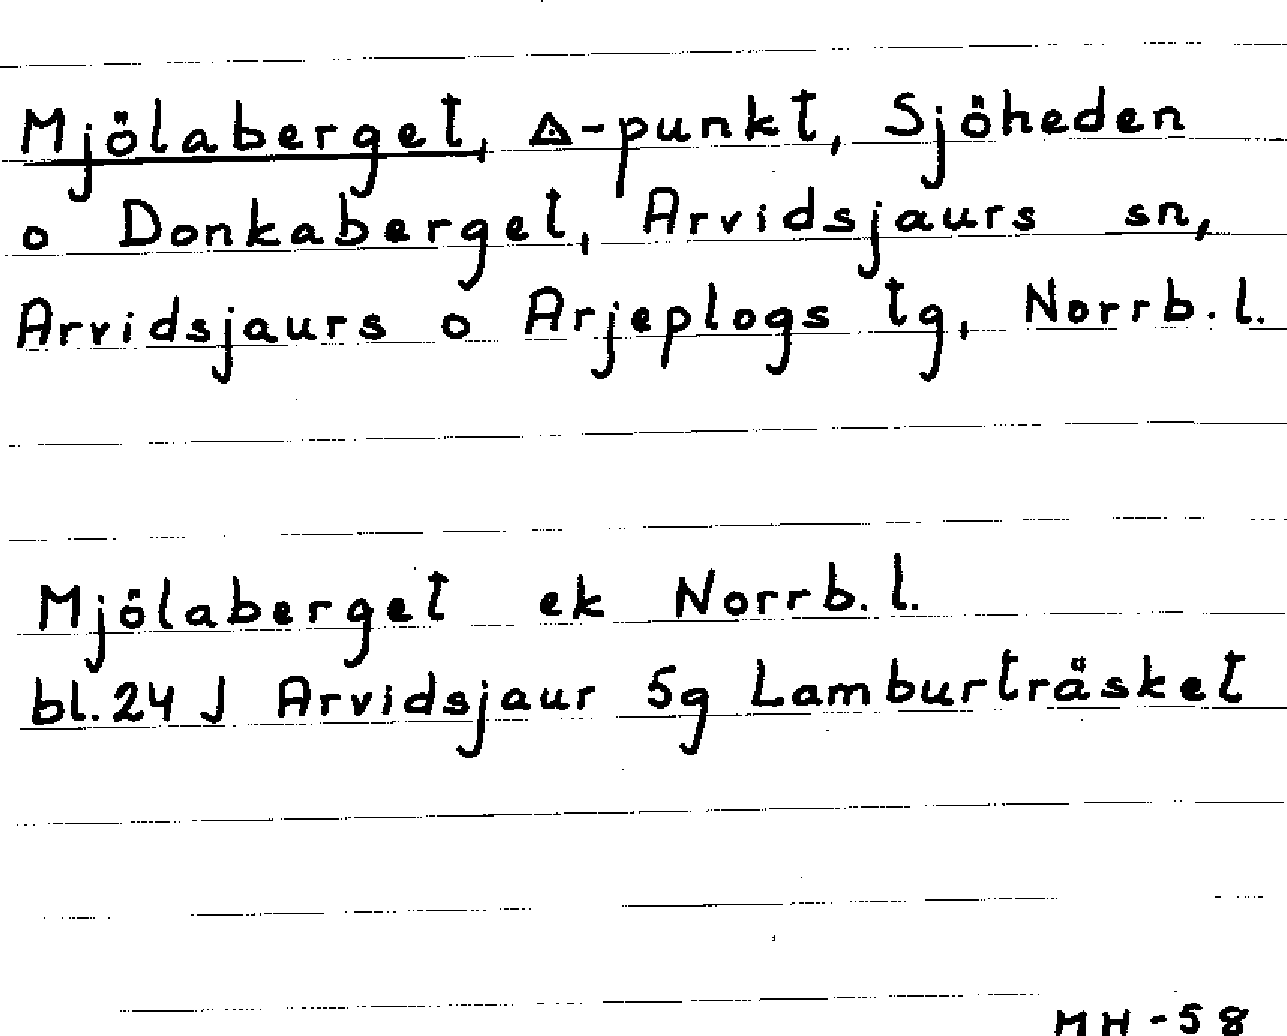 Mjölaberget, △-punkt, Sjöheden
o Donkaberget, Arvidsjaurs sn,
Arvidsjaurs o Arjeplogs tg, Norrb.l.
Mjölaberget ek Norrb.l.
bl. 24 J Arvidsjaur 5g Lamburträsket
MH-58